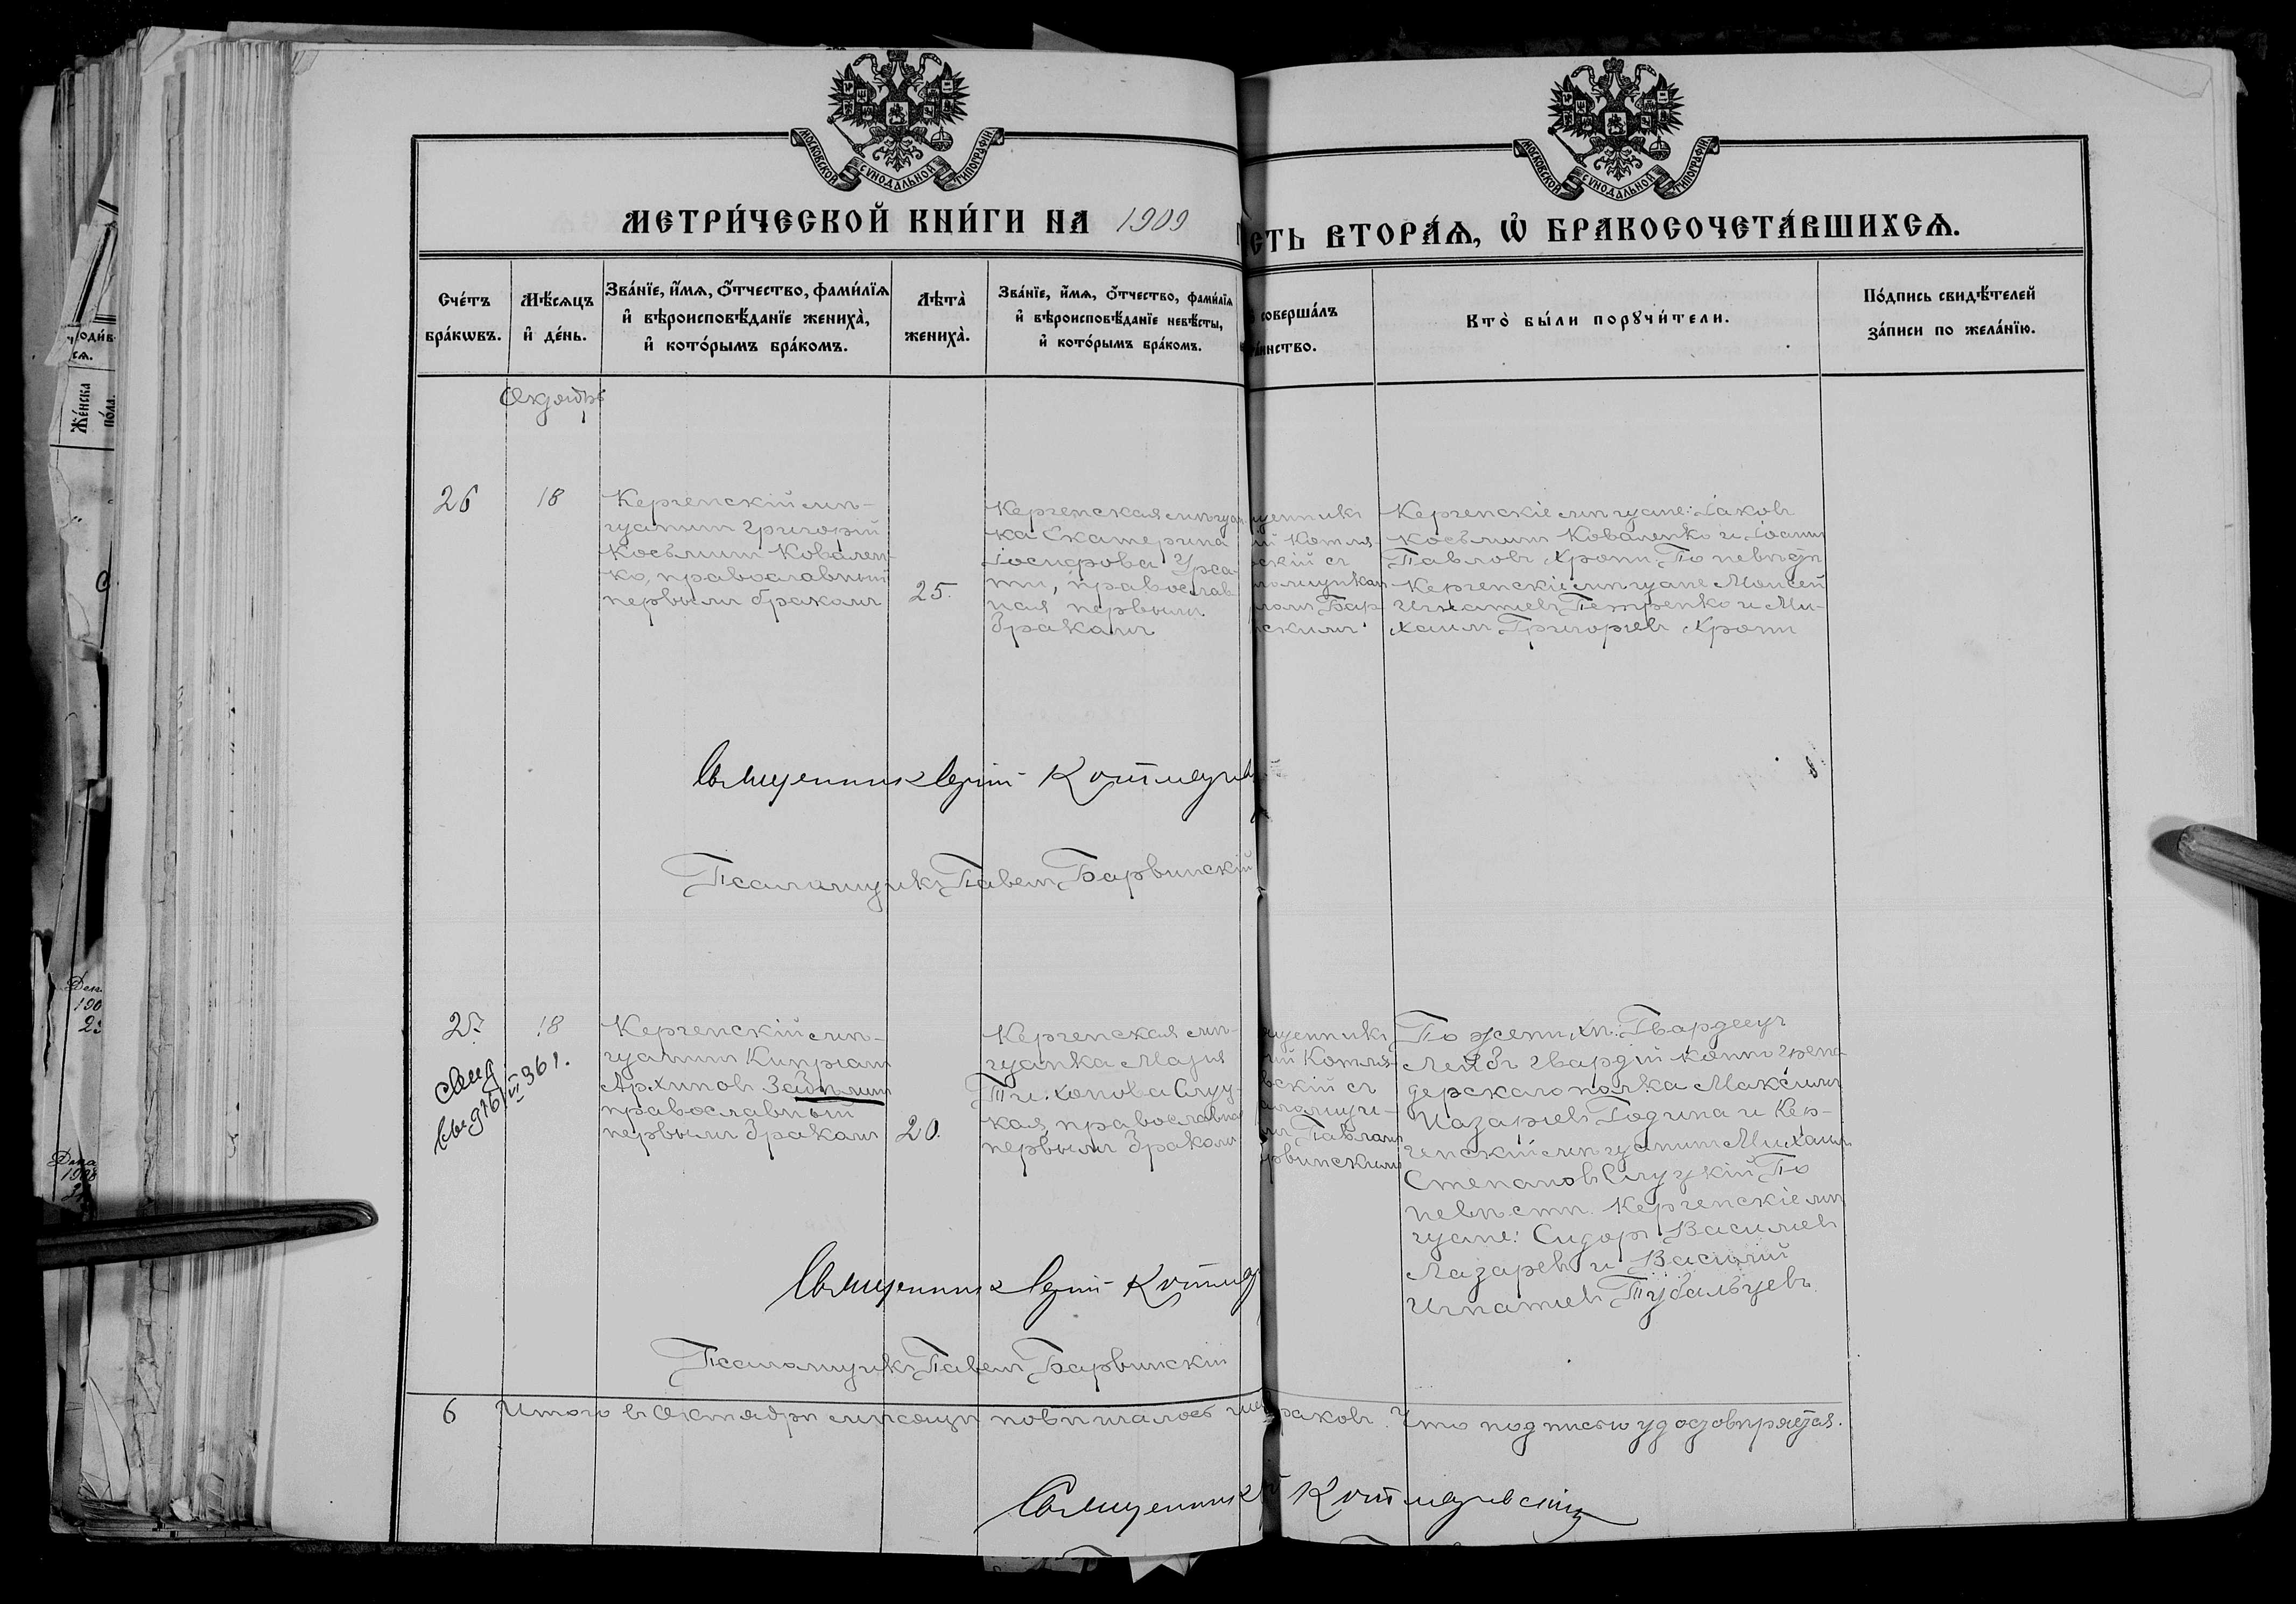 МОСКОВСКОЙ СѴНОДАЛЬНОЙ ТИПОГРАФІИ
МОСКОВСКОЙ СѴНОДАЛЬНОЙ ТИПОГРАФІИ
МЕТРИ́ЧЕСКОЙ КНИ́ГИ НА 1909
СТЬ ВТОРА́Ѧ, Ѡ҆ БРАКОСОЧЕТА́ВШИХСѦ.
Сче́тъ
бра́кѡвъ.
Мѣ́сяцъ
и҆ де́нь.
Зва́нїе, и҆́мѧ, ѻ҆́тчество, фами́лїѧ
и҆ вѣроисповѣ́данїе женихà,
и҆ кото́рымъ бра́комъ.
Лѣ́та
женихà.
Зва́нїе, и҆́мѧ, ѻ҆́тчество, фами́лїѧ
и҆ вѣроисповѣ́данїе невѣ́сты,
и҆ кото́рымъ бра́комъ.
соверша́лъ
инство.
Кто̀ бы́ли порꙋчи́тели.
По́дпись свидѣ́телей
за́писи по жела́нїю.
Октябрь
26
18
Керченскій мѣ-
щанинъ Григорій
Косьминъ Ковален-
ко, православный
первымъ бракомъ
25.
Керченская мѣщан
ка Екатерина
Іосифова Урса-
ти, православ
ная первымъ
бракомъ
щенникъ
ій Котля-
скій съ
ломщиком
ломъ Бар
скимъ
Керченскіе мѣщане: Іаковъ
Косьминъ Коваленко и Іоаннъ
Павловъ Хропи По невѣстѣ
Керченскіе мѣщане Моисей
Игнатіевъ Петренко и Ми-
хаилъ Григорьевъ Хропи
Священник Сергій Котляревс
Псаломщикъ Павелъ Барвинскій
27
18
свид
выд 16/III 361.
Керченскій мѣ-
щанинъ Кипріанъ
Архиповъ Забѣлинъ
православный
первымъ бракомъ
20.
Керченская мѣ-
щанка Марія
Тихонова Слуц-
кая православная
первымъ бракомъ
щенникъ
ій Котля-
вскій съ
аломщи-
мъ Павломъ
рвинскимъ
По женихѣ: Гвардеецъ
Лейбъ гвардіи конно грена
дерскаго полка Максимъ
Назаріевъ Година и Кер-
ченскій мѣщанинъ Михаилъ
Степановъ Слуцкій По
невѣстѣ. Керченскіе мѣ
щане: Сидоръ Василіевъ
Лазаревъ и Василій
Игнатіевъ Тубальцевъ.
Священник Сергій Котляр
Псаломщикъ Павелъ Барвинскій
6 Итого въ Октябрѣ мѣсяцѣ повѣнчалось раковъ. Что подписью удостовѣряется.
Священник Котляревскій